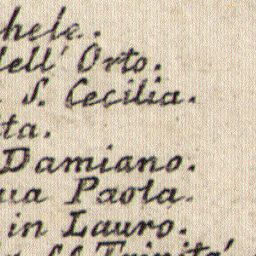 hele.
dell' Orto.
S. Cecilia.
ta.
Damiano.
ua Paola.
in Lauro.
Trinitá